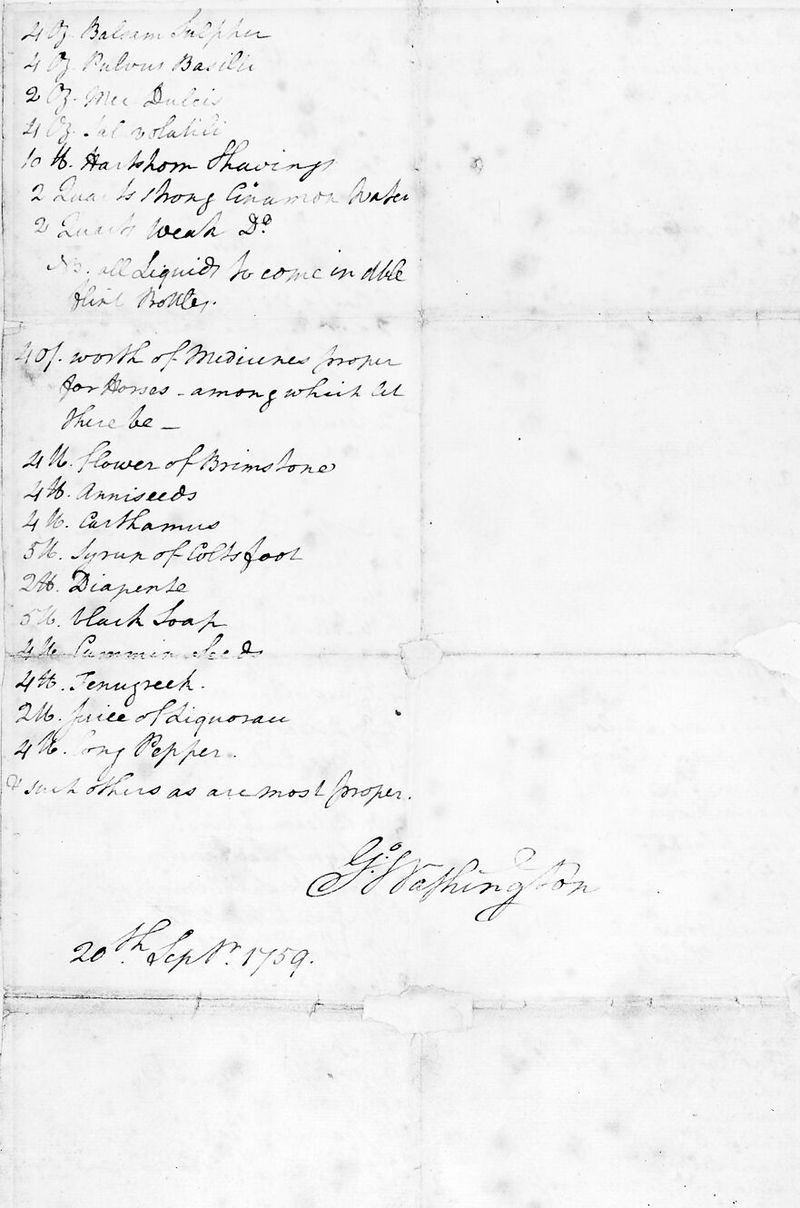 4 Oz. Balsam Sulpher
4 Oz. Pulvus Basilic
2 Oz. Mer Dulcis
4 Oz. Sal volatili
10 lb. Hartshorn Shavings
2 Quarts strong Cinamon Water
2 Quarts weak Do
NB. all Liquids to come in dble
flint Bottles.
40/. worth of Medicines proper
for Horses - among which let
there be —
4 lb. flower of Brimstone
4 lb. Anniseeds
4 lb. Carthamus
5 lb. Syrup of Colts foot
2 lb. Diapente
5 lb. black Soap
4 lb. Cummin Seed
4 lb. Fenugreek.
2 lb. Juice of Liquorau
4 lb. long Pepper.
& such others as are most proper.
Go Washington
20th Septr. 1759.